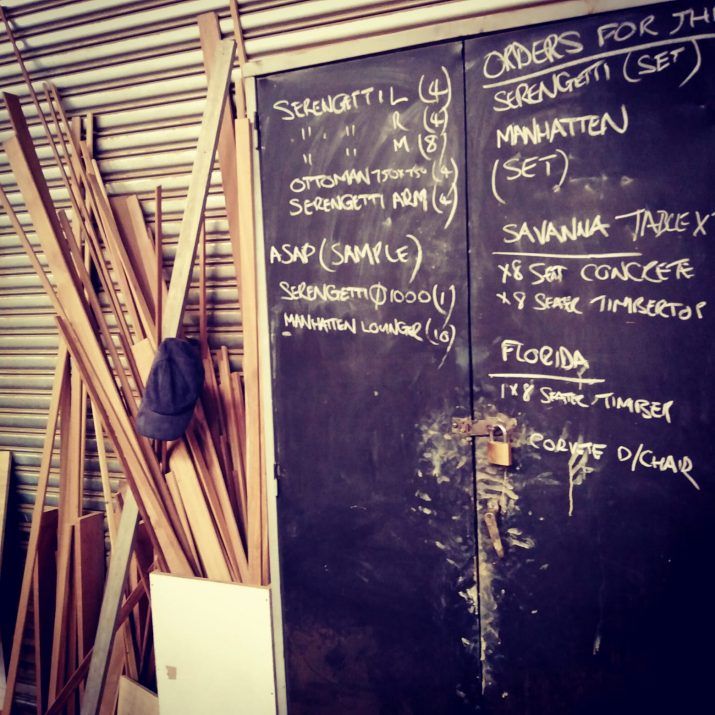 SERENGETTI L (4)
" " R (4)
" " M (8)
OTTOMAN 750x750 (4)
SERENGETTI ARM (4)
ASAP (SAMPLE)
SERENGETTI Ø 1000 (1)
MANHATTEN LOUNGER (10)
ORDERS FOR THI
SERENGETTI (SET)
MANHATTEN
(SET)
SAVANNA TABLE X
x8 SET CONCRETE
x 8 SEATER TIMBERTOP
FLORIDA
1x8 SEATER TIMBER
D/CHAIR